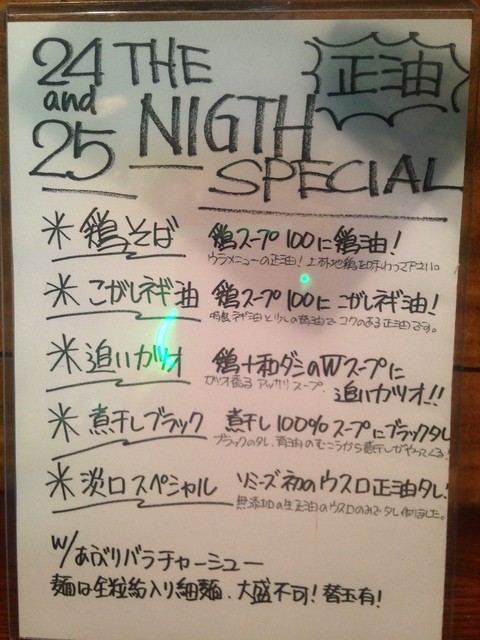 24 THE
and NIGTH
25 SPECIAL
正油
米 鶏そば 鶏スープ100に鶏油!
ウラメニューの正油!
米 こがしネギ油 鶏スープ100にこがしネギ油!
ネギ油と少しの醤油でコクのある正油です。
米 追いガツオ 鶏+和ダシのWスープに
カツオ香る アッサリスープ 追いガツオ!!
米 煮干しブラック 煮干し100%スープにブラックタレ
ブラックのタレ、醤油のむこうから煮干しがやってくる!
米 淡口スペシャル ソミーズ初のウスロ正油タレ!
無添加の生正油のウスロのみでタレ作りました。
w/あぶりバラチャーシュー
麺は全粒粉入り細麺、大盛不可!替玉有!